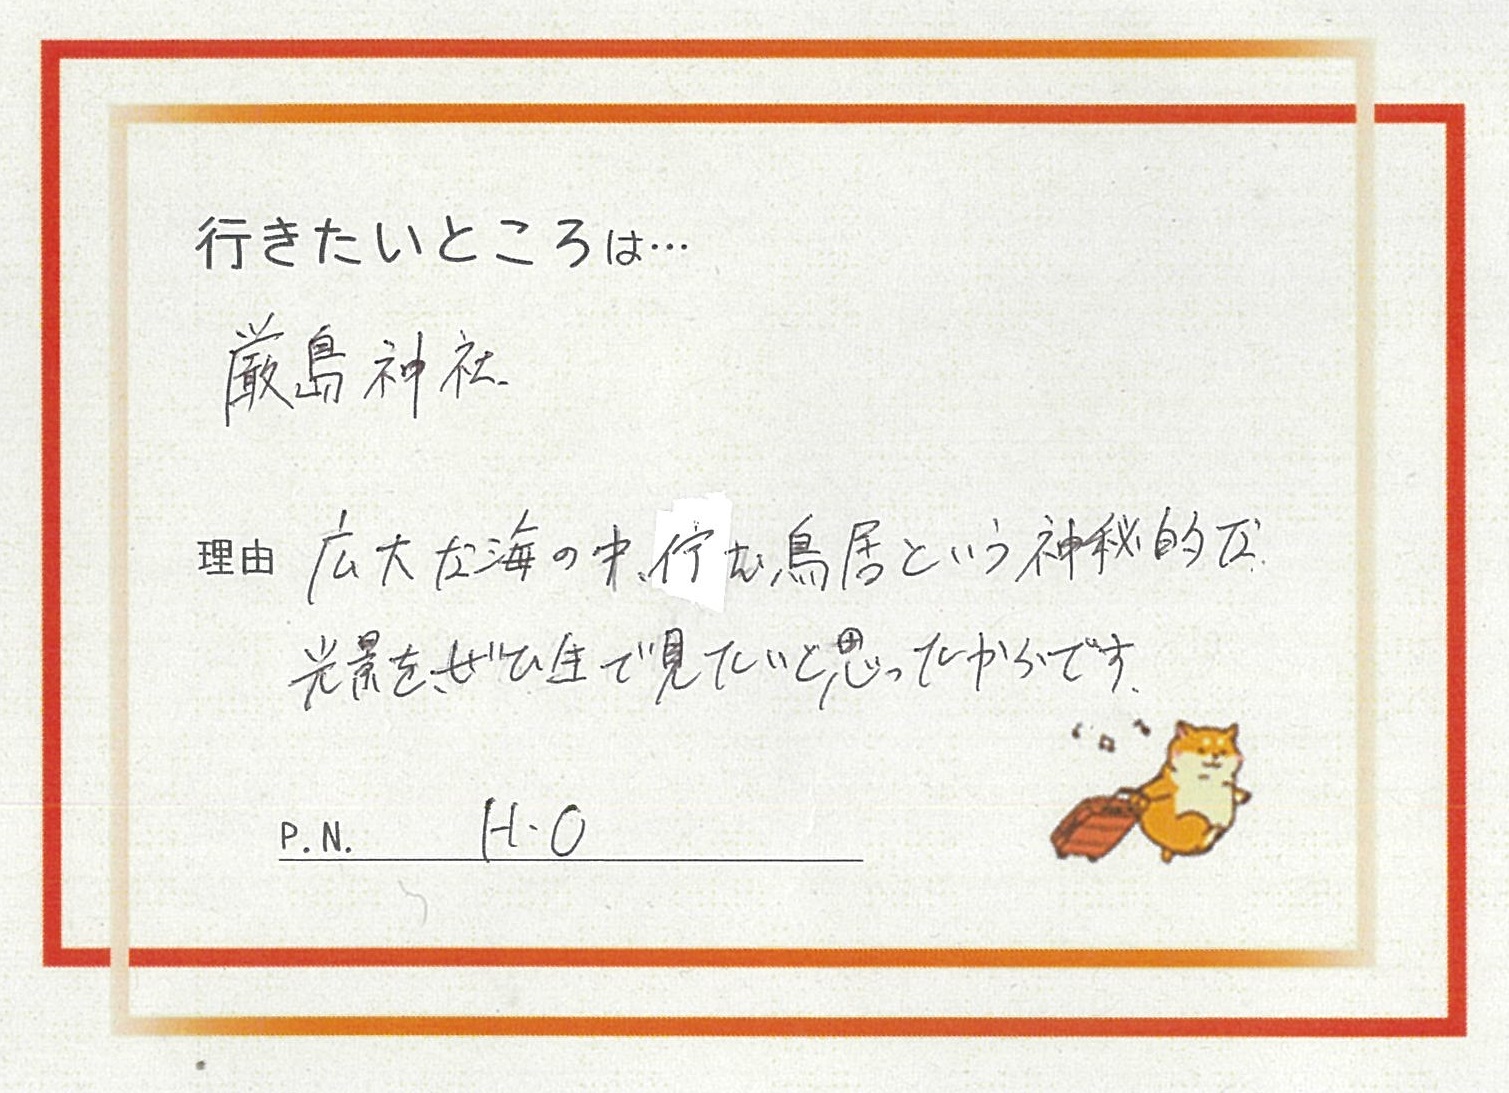 行きたいところは…
厳島神社
理由 広大な海の中、佇む鳥居という神秘的な
光景を、ぜひ生で見たいと思ったからです。
P.N. H・O